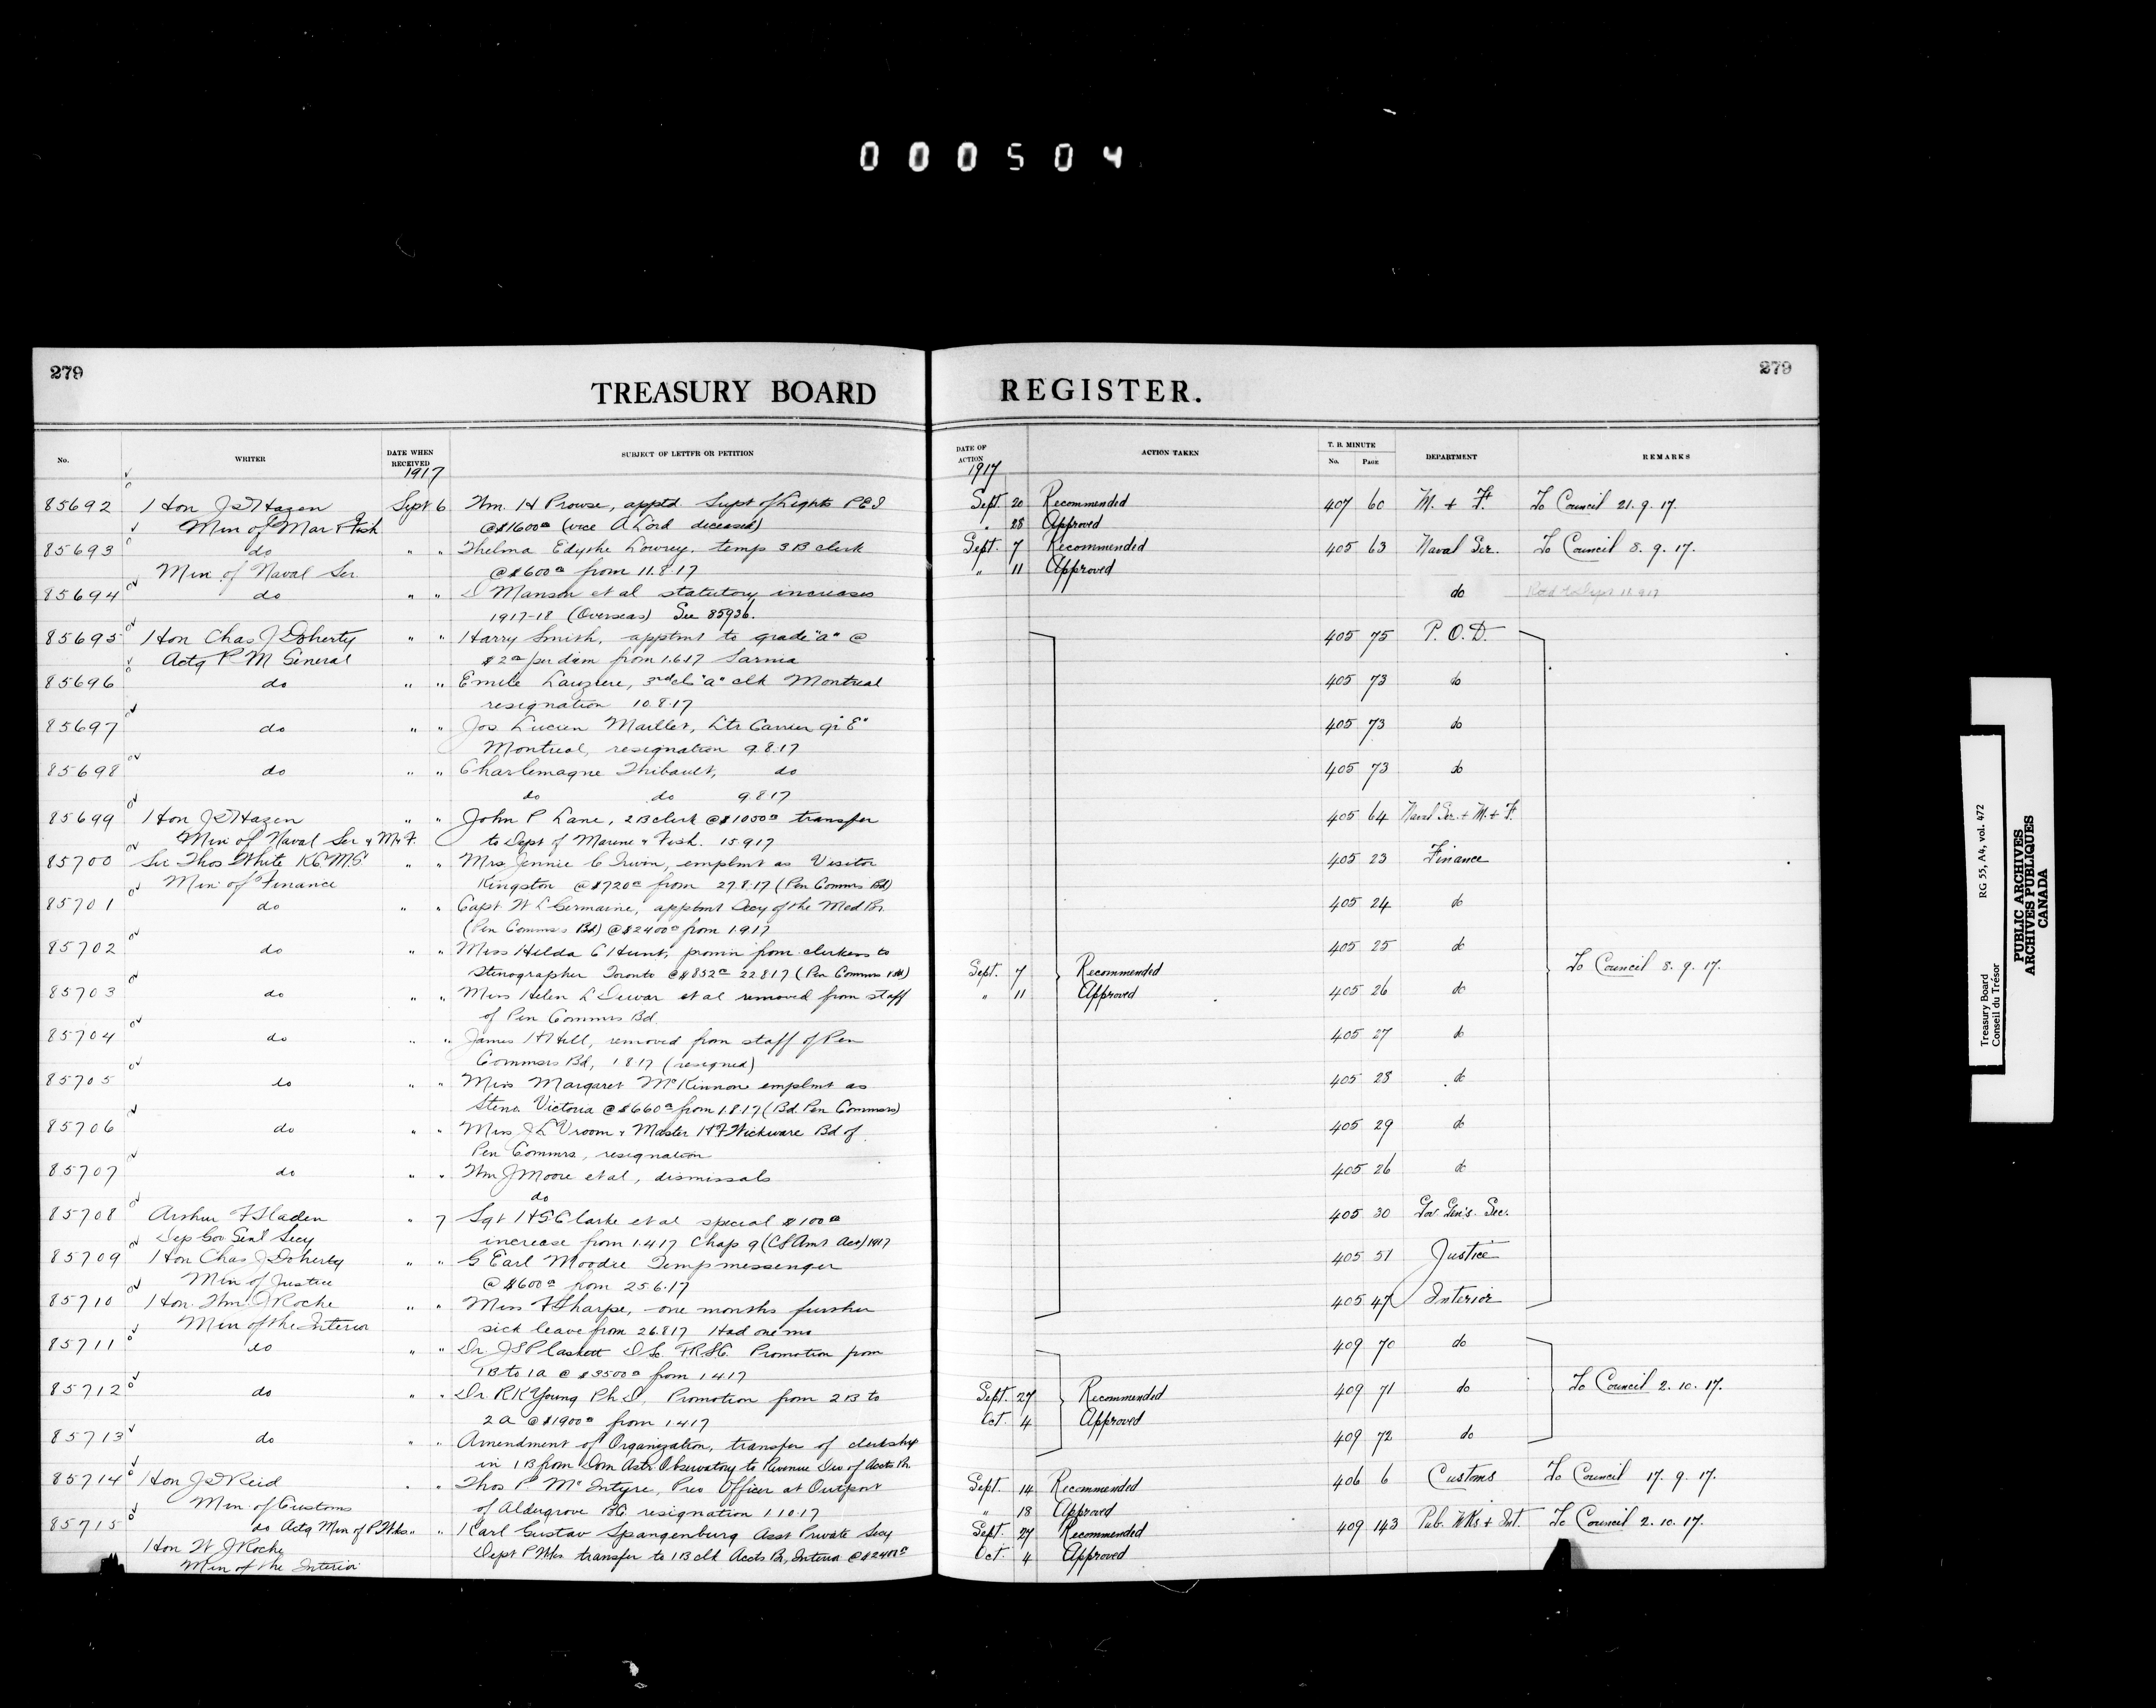 000504
279
TREASURY BOARD REGISTER.
279
No. WRITER DATE WHEN RECEIVED SUBJECT OF LETTER OR PETITION DATE OF ACTION ACTION TAKEN T. B. MINUTE No. PAGE DEPARTMENT REMARKS
1917 1917
85692 Hon J D Hazen Sept 6 Wm. H Prowse, apptd Supt of Lights P E I Sept. 20 Recommended 407 60 M. + F. To Council 21.9.17.
Min of Mar & Fish @ $1600 (vice A Lord deceased) " 28 Approved
85693 do " " Thelma Edythe Lowrey, temp 3 B clerk Sept. 7 Recommended 405 63 Naval Ser. To Council 8.9.17.
Min of Naval Ser @ $600 from 11.8.17 " 11 Approved
85694 do " " D Manson et al statutory increases do
1917-18 (Overseas) See 85936.
85695 Hon Chas J Doherty " " Harry Smith, apptmt to grade "a" @ 405 75 P. O. D.
Actg P M General $2 per diem from 1.6.17 Sarnia
85696 do " " Emile Lauziere, 3rd cl "a" clk Montreal 405 73 do
resignation 10.8.17
85697 do " " Jos Lucien Maillet, Ltr Carrier gr "E" 405 73 do
Montreal, resignation 9.8.17
85698 do " " Charlemagne Thibault, do 405 73 do
do do 9.8.17
85699 Hon J D Hazen " " John P Lane, 2 B clerk @ $1050 transfer 405 64 Naval Ser. + M. + F.
Min of Naval Ser & M & F. to Dept of Marine & Fish. 15.9.17
85700 Sir Thos White K.C.M.G. " " Mrs Jennie C Irwin, emplmt as Visitor 405 23 Finance
Min of Finance Kingston @ $720 from 27.8.17 (Pen Commrs Bd)
85701 do " " Capt W L Germaine, apptmt Secy of the Med Br. 405 24 do
(Pen Commrs Bd) @ $2400 from 1.9.17
85702 do " " Miss Hilda C Hunt, promn from clerkess to 405 25 do
Stenographer Toronto @ $852 22.8.17 (Pen Commrs Bd) Sept. 7 Recommended To Council 8.9.17.
85703 do " " Miss Helen L Dewar et al removed from staff " 11 Approved 405 26 do
of Pen Commrs Bd.
85704 do " " James H Hill, removed from staff of Pen 405 27 do
Commrs Bd, 1.8.17 (resigned)
85705 do " " Miss Margaret McKinnon emplmt as 405 28 do
Steno. Victoria @ $660 from 1.8.17 (Bd Pen Commrs)
85706 do " " Miss J L Vroom & Master H F Wickware Bd of 405 29 do
Pen Commrs, resignation
85707 do " " Wm J Moore et al, dismissals 405 26 do
do
85708 Arthur F Sladen " 7 Sgt H S Clarke et al special $100 405 30 Gov Gen's. Sec.
Dep Gov Genl Secy increase from 1.4.17 Chap 9 (C S Amt Act) 1917
85709 Hon Chas J Doherty " " G Earl Moodie Temp messenger 405 51 Justice
Min of Justice @ $600 from 25.6.17
85710 Hon. Wm. J Roche " " Miss F Sharpe, one months further 405 47 Interior
Min of the Interior sick leave from 26.8.17 Had one mo
85711 do " " Dr J S Plaskett D Sc. F R S C. Promotion from 409 70 do
1 B to 1 A @ $3500 from 1.4.17
85712 do " " Dr R K Young Ph D, Promotion from 2 B to Sept. 27 Recommended 409 71 do To Council 2.10.17.
2 A @ $1900 from 1.4.17 Oct. 4 Approved
85713 do " " Amendment of Organization, transfer of clerkship 409 72 do
in 1 B from Dom Astr. Observatory to Revenue Div of Accts Br.
85714 Hon J D Reid " " Thos P McIntyre, Prev Officer at Outport Sept. 14 Recommended 406 6 Customs To Council 17.9.17.
Min. of Customs of Aldergrove B C. resignation 1.10.17 " 18 Approved
85715 do Actg Min of P Wks " " Karl Gustav Spangenburg Asst Private Secy Sept. 27 Recommended 409 143 Pub. Wks + Int. To Council 2.10.17.
Hon W J Roche Dept P Wks transfer to 1 B clk Accts Br, Interior @ $2400 Oct. 4 Approved
Min of the Interior
Treasury Board RG 55, A4, vol. 472
Conseil du Trésor
PUBLIC ARCHIVES
ARCHIVES PUBLIQUES
CANADA